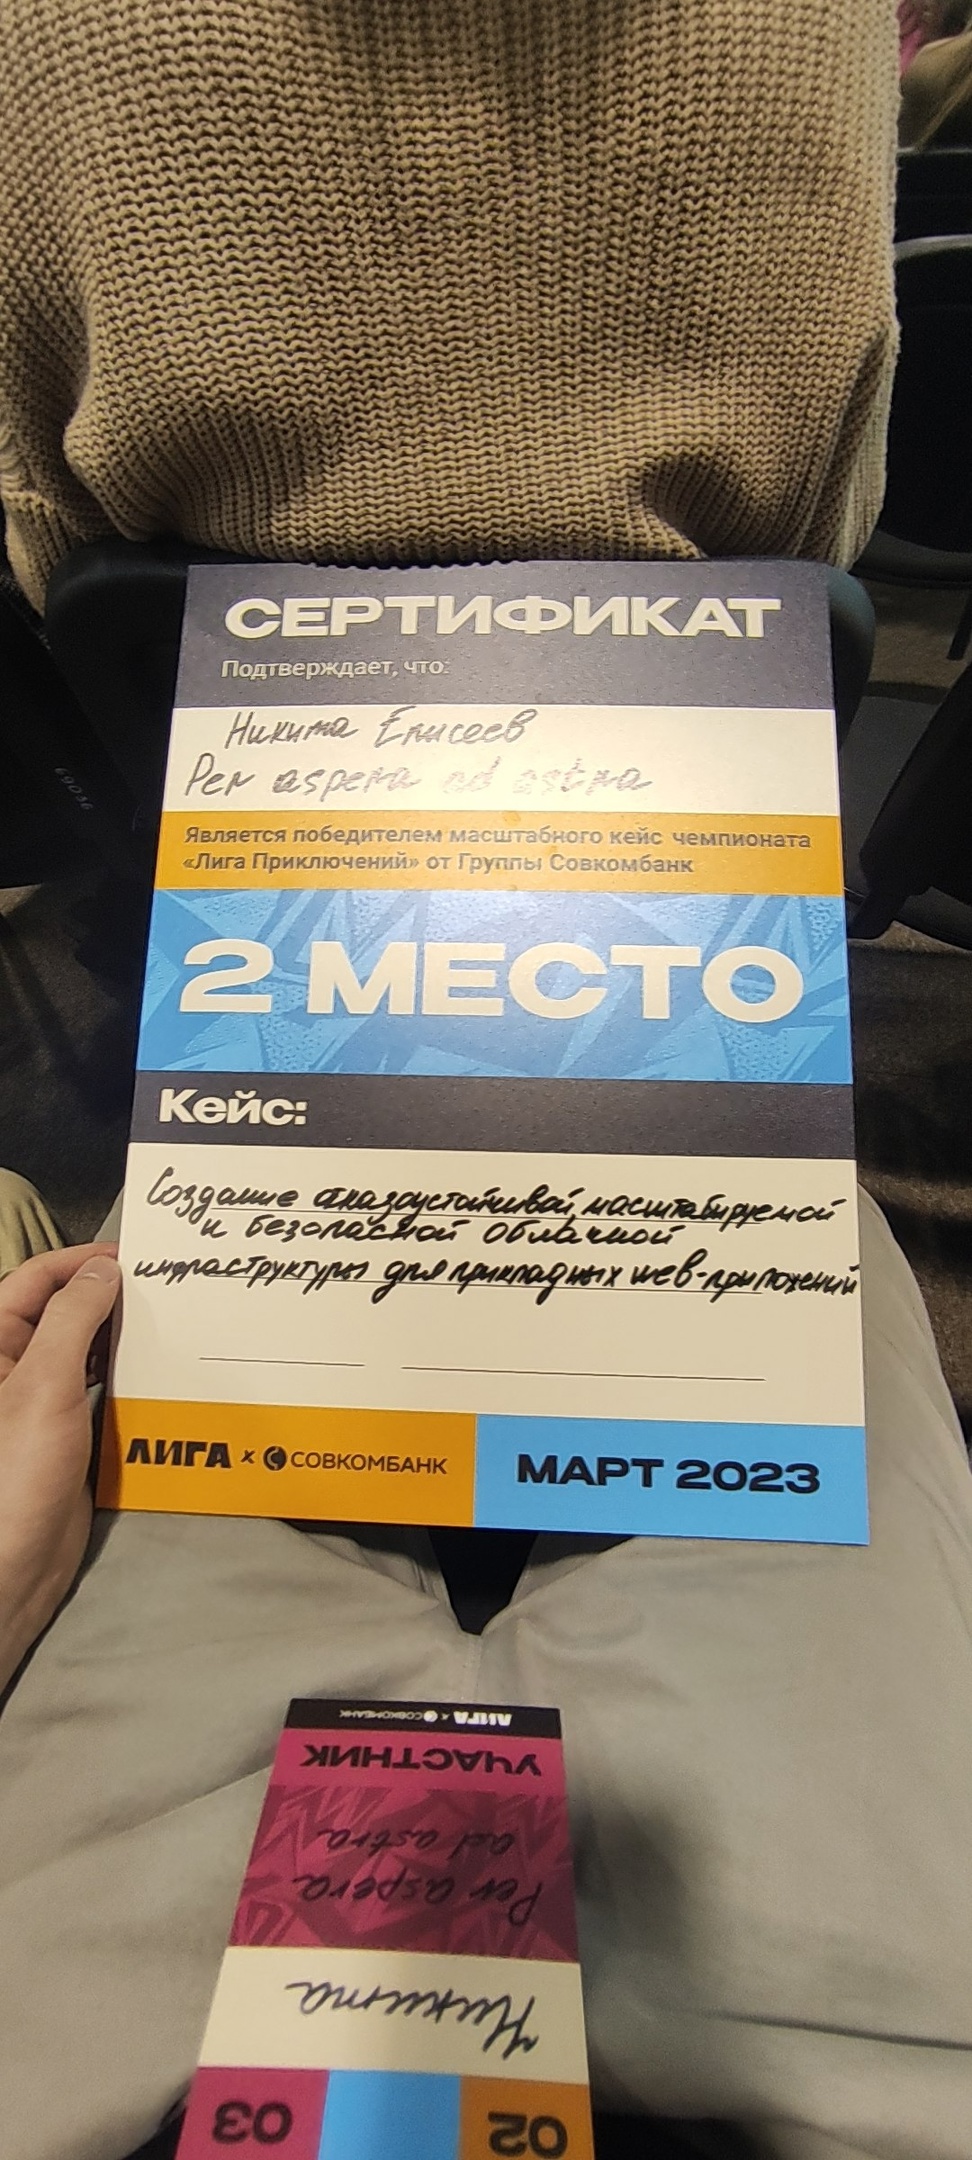 СЕРТИФИКАТ
Подтверждает, что:
Никита Елисеев
Per aspera ad astra
Является победителем масштабного кейс чемпионата
«Лига Приключений» от Группы Совкомбанк
2 МЕСТО
Кейс:
Создание отказоустойчивой, масштабируемой
и безопасной облачной
инфраструктуры для прикладных web-приложений
ЛИГА x СОВКОМБАНК
МАРТ 2023
ЛИГА x СОВКОМБАНК
УЧАСТНИК
Per aspera
ad astra
Никита
02
03